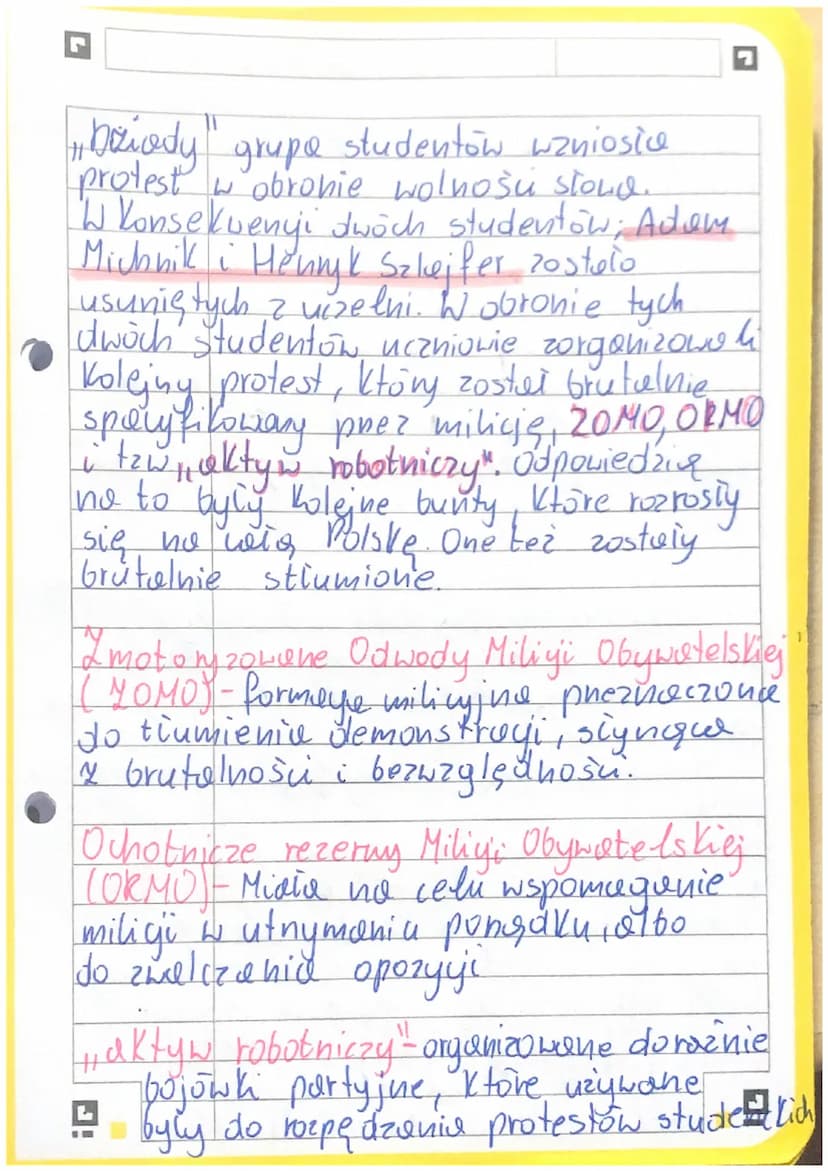 „Dziady" grupa studentów wzniosła
protest w obronie wolności słowa.
W konsekwencji dwóch studentów; Adam
Michnik i Henryk Szlejfer zostało
usuniętych z uczelni. W obronie tych
dwóch studentów uczniowie zorganizowali
kolejny protest, który został brutalnie
spacyfikowany przez milicję, ZOMO, ORMO
i tzw „aktyw robotniczy". Odpowiedzią
na to były kolejne bunty, które rozrosły
się na całą Polskę. One też zostały
brutalnie stłumione.
Zmotoryzowane Odwody Milicji Obywatelskiej
(ZOMO) - formacja milicyjna przeznaczona
do tłumienia demonstracji, słynąca
z brutalności i bezwzględności.
Ochotnicze rezerwy Milicji Obywatelskiej
(ORMO) - Miała na celu wspomaganie
milicji w utrzymaniu porządku, albo
do zwalczania opozycji
„aktyw robotniczy" - organizowane doraźnie
bojówki partyjne, które używane
były do rozpędzania protestów studenckich